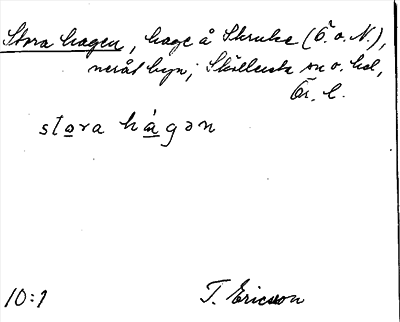 Stora hagen, hage å Skruke (Ö. o. N.),
neråt byn; Sköllersta sn o. hd,
Ör. l.
stora hágən
10:1 T. Ericsson